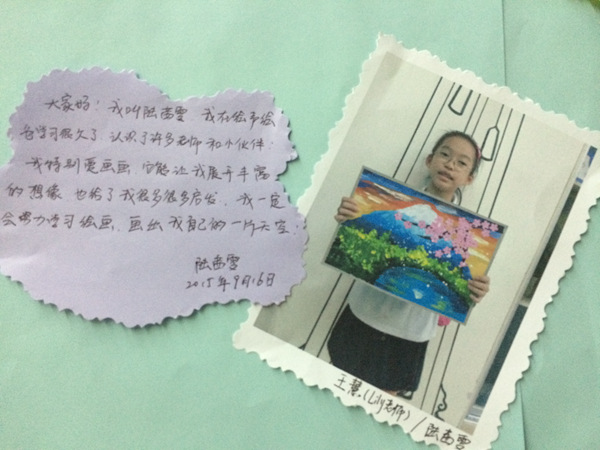 大家好！我叫陆雪雯 我在绘本绘
也学习很久了 认识了许多老师和小伙伴.
我特别爱画画, 它能让我展开丰富
的想像 也给了我很多很多启发. 我一定
会努力学习绘画, 画出我自己的一片天空.
2015年9月16日
王慧(Lily老师)